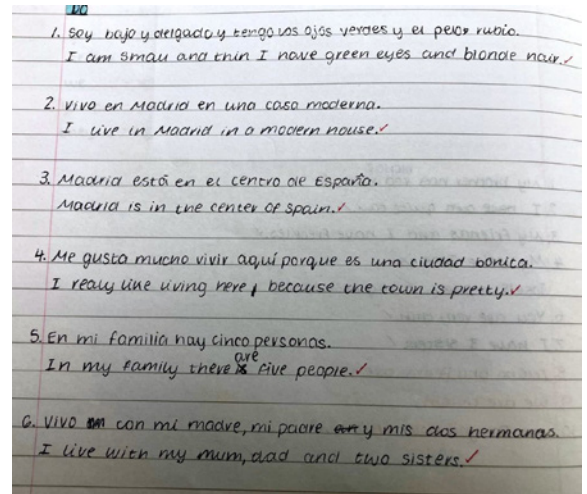 DO
1. Soy bajo y delgado y tengo los ojos verdes y el pelo rubio.
I am small and thin I have green eyes and blonde hair.
2. Vivo en Madrid en una casa moderna.
I live in Madrid in a modern house.
3. Madrid está en el centro de España.
Madrid is in the center of Spain.
4. Me gusta mucho vivir aquí porque es una ciudad bonita.
I realy like living here, because the town is pretty.
5. En mi familia hay cinco personas.
In my family there are five people.
6. Vivo con mi madre, mi padre y mis dos hermanas.
I live with my mum, dad and two sisters.